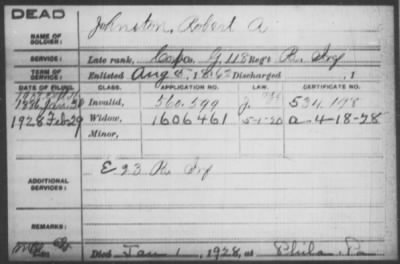 DEAD
NAME OF SOLDIER: Johnston, Robert A.
SERVICE: Late rank, Co. G, 118 Reg't Pa. Inf
TERM OF SERVICE: Enlisted Aug 1862 Discharged , 1
DATE OF FILING. CLASS. APPLICATION NO. LAW. CERTIFICATE NO.
1886 Jan. 30 Invalid, 560.599 534.198
1928 Feb 29 Widow, 1606461 5-1-20 a-4-18-28
Minor,
ADDITIONAL SERVICES: E 23 Pa. Inf
REMARKS:
Died Jan 1, 1928, at Phila. Pa